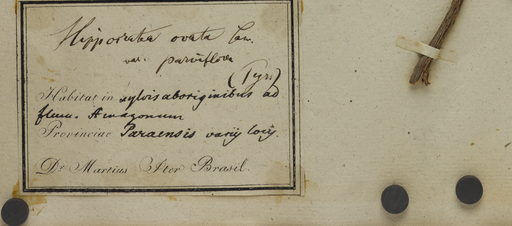 Hippocratea ovata Lam.
var. parviflora
(Pyr.)
Habitat in sylvis aboriginibus ad
fluv. Amazonum
Provinciae Paraensis variis locis.
Dr. Martius Iter Brasil.